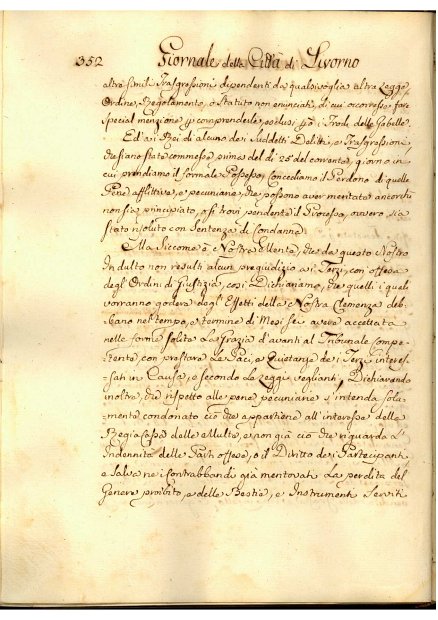 352 Giornale della Città di Livorno
altre simili Trasgressioni dipendenti da qualsivoglia altra Legge
Ordine, Regolamento, o Statuto non enunciati, di cui occorresse fare
special menzione p comprenderle esclusi però i Frodi delle Gabelle.
Ed ai Rei di alcuno dei suddetti Delitti, e Trasgressioni
che siano state commesse prima del dì 25 del corrente, giorno in
cui prendiamo il formale Possesso, Concediamo il Perdono di quelle
Pene afflittive, e pecuniarie, che possono aver meritate ancorchè
non sia principiato, o si trovi pendente il Processo, ovvero sia
stato risoluto con Sentenza di Condanne.
Ma siccome è Nostra Mente, che da questo Nostro
Indulto non resulti alcun pregiudizio ai Terzi, con offesa
degl'Ordini di Giustizia, così Dichiariamo, che quelli i quali
vorranno godere degl'Effetti della Nostra Clemenza deb-
bano nel tempo, e termine di Mesi sei avere accettata
nelle forme solite La Grazia d'avanti al Tribunale Compe-
tente, con prestare Le Paci, e Quietanze dei Terzi interes-
sati in Causa, e secondo Le Leggi veglianti, Dichiarando
inoltre, che rispetto alle pene pecuniarie s'intenda sola-
mente condonato ciò che appartiene all'interesse della
Regia Cassa delle Multe, e non già ciò che riguarda a
Indennità delle Parti offese, o il Diritto dei Partecipanti
e Salva nei Contrabbandi già mentovati La perdita del
Genere proibito, e delle Bestie, e Instrumenti serviti